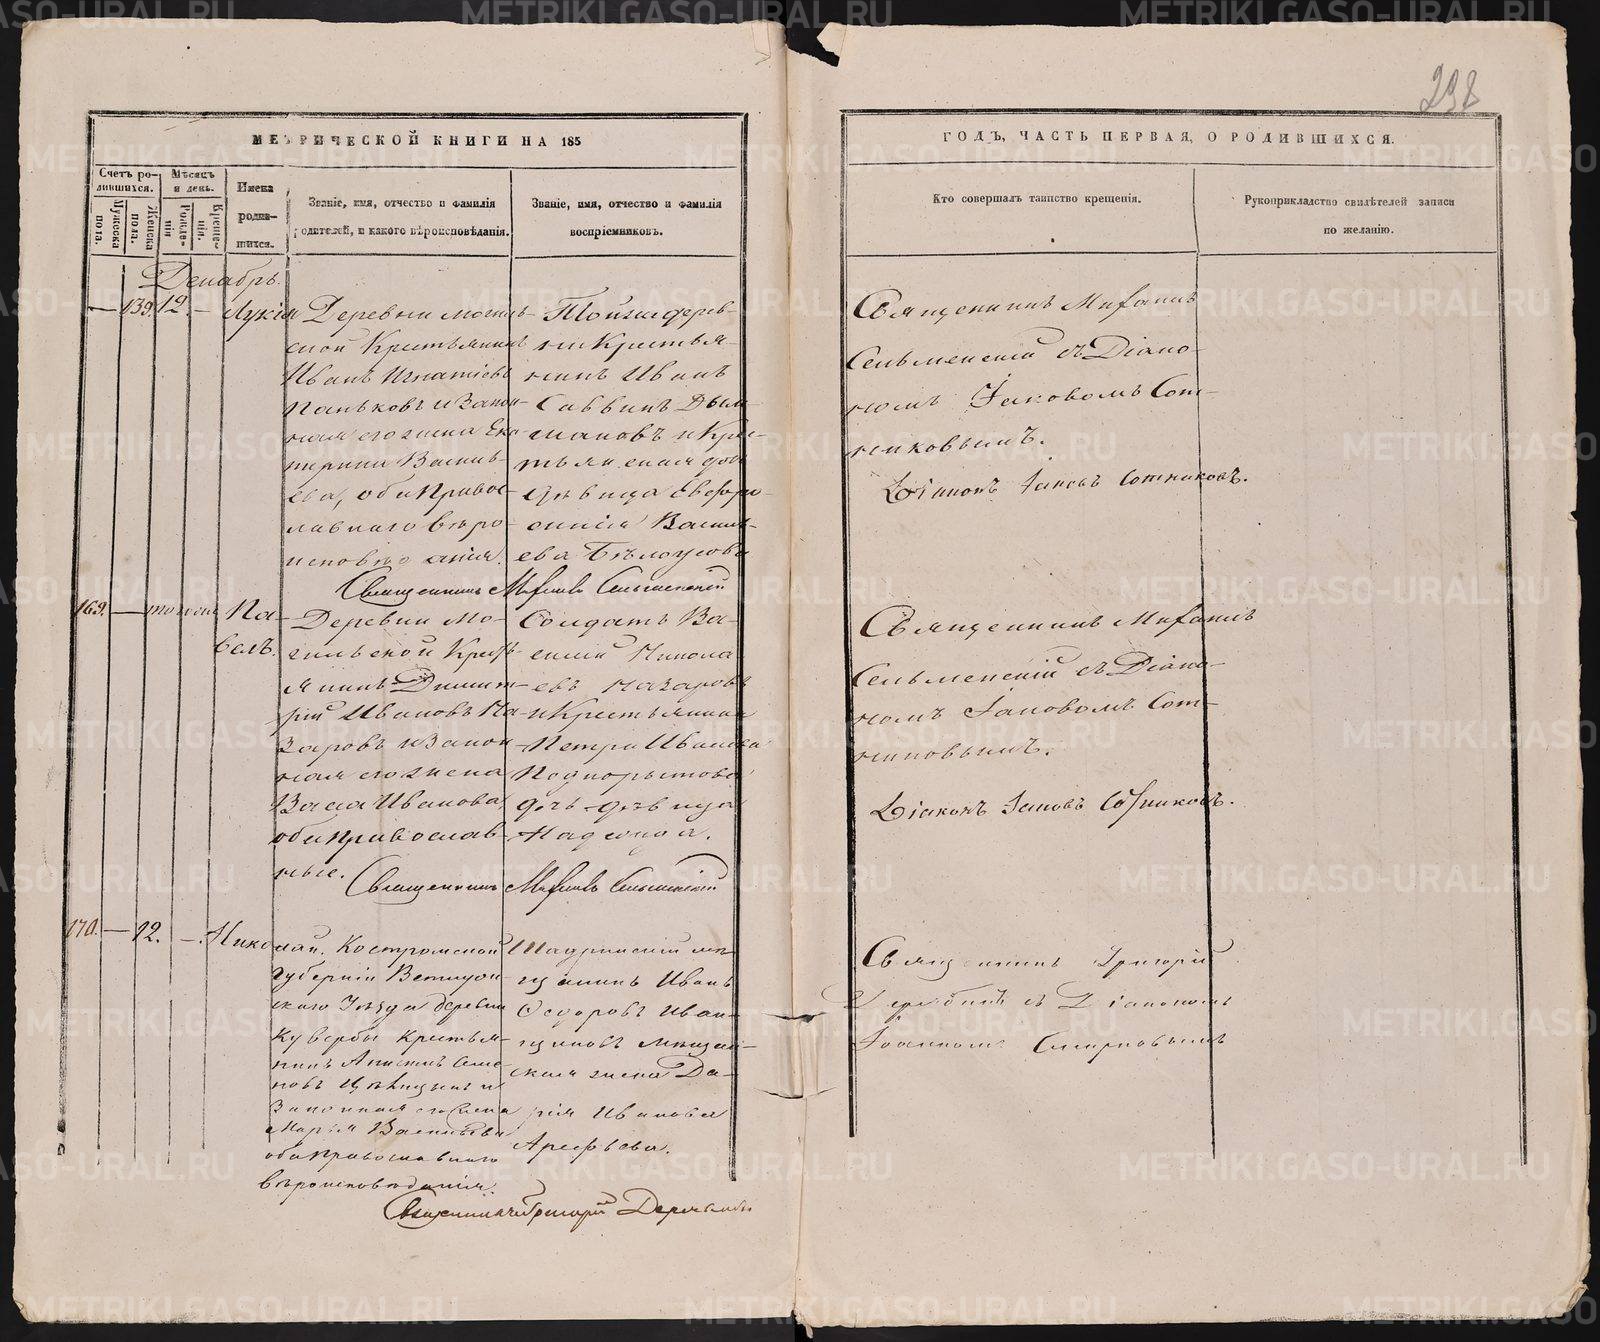 298
МЕТРИЧЕСКОЙ КНИГИ НА 185
ГОДЪ, ЧАСТЬ ПЕРВАЯ, О РОДИВШИХСЯ.
Счетъ ро-
дившихся.
Мужеска
пола.
Женска
пола.
Мѣсяцъ
и день.
Рожде-
нія
Креще-
нія.
Имена
родив-
шихся.
Званіе, имя, отчество и фамилія
родителей, и какого вѣроисповѣданія.
Званіе, имя, отчество и фамилія
воспріемниковъ.
Кто совершалъ таинство крещенія.
Рукоприкладство свидѣтелей записи
по желанію.
Декабрь.
— 139. 12. — Лукія
Деревни Могиль-
ской Крестьянинъ
Иванъ Игнатіевъ
Паньковъ и Закон-
ная его жена Ека-
терина Василь-
ева, оба Православ-
лавнаго вѣро-
исповѣданія.
Той же дерев-
ни Крестья-
нинъ Иванъ
Саввинъ Дыл-
и Кре-
стьянская доч
дѣвица Евфро-
синія Василь-
ева Бѣлоусова
Священникъ Михаилъ Сельменскій
Священникъ Михаилъ
Сельменскій съ Діако-
номъ Іаковомъ Сот-
никовымъ.
Діаконъ Іаковъ Сотниковъ.
169. — того же Па-
велъ.
Деревни Мо-
гильской Кресть-
янинъ Димит-
рій Ивановъ На-
заровъ и Закон-
ная его жена
Васса Иванова,
оба Православ-
ные.
Солдатъ Ва-
силій Никола-
евъ Назаровъ
и Крестьянина
Петра Иванова
Подкорытова
дочь дѣвица
Надежда.
Священникъ Михаилъ Сельменскій
Священникъ Михаилъ
Сельменскій съ Діако-
номъ Іаковомъ Сот-
никовымъ.
Діаконъ Іаковъ Сотниковъ.
170. — 12. —. Николай.
Костромской
губерніи Ветлуж-
скаго Уѣзда деревни
Кувербы Крестья-
нинъ Анисимъ Семе-
новъ и
Законная его жена
Марья Васильева
оба Православнаго
вѣроисповѣданія.
Шадринскій мѣ-
щанинъ Иванъ
Ѳедоровъ Иван-
щиковъ мѣщан-
ская жена Да-
рія Иванова
Арефьева.
Священникъ Григорій
Священникъ Григорій
съ Діакономъ
Іоанномъ Смирновымъ